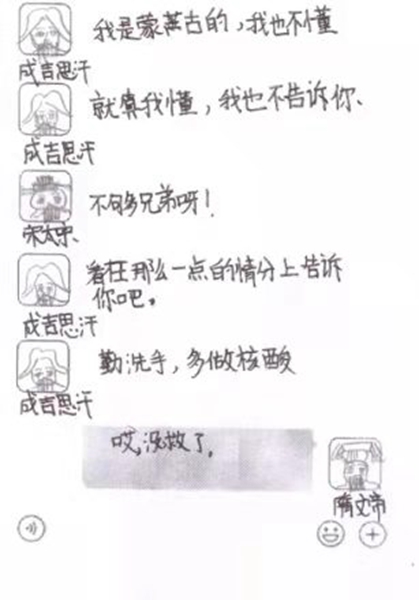 我是蒙古古的，我也不懂
成吉思汗
就算我懂，我也不告诉你、
成吉思汗
不够兄弟呀！
宋太宗、
看在那么一点的情分上告诉
你吧。
成吉思汗
勤洗手，多做核酸
成吉思汗
哎，没救了，
隋文帝